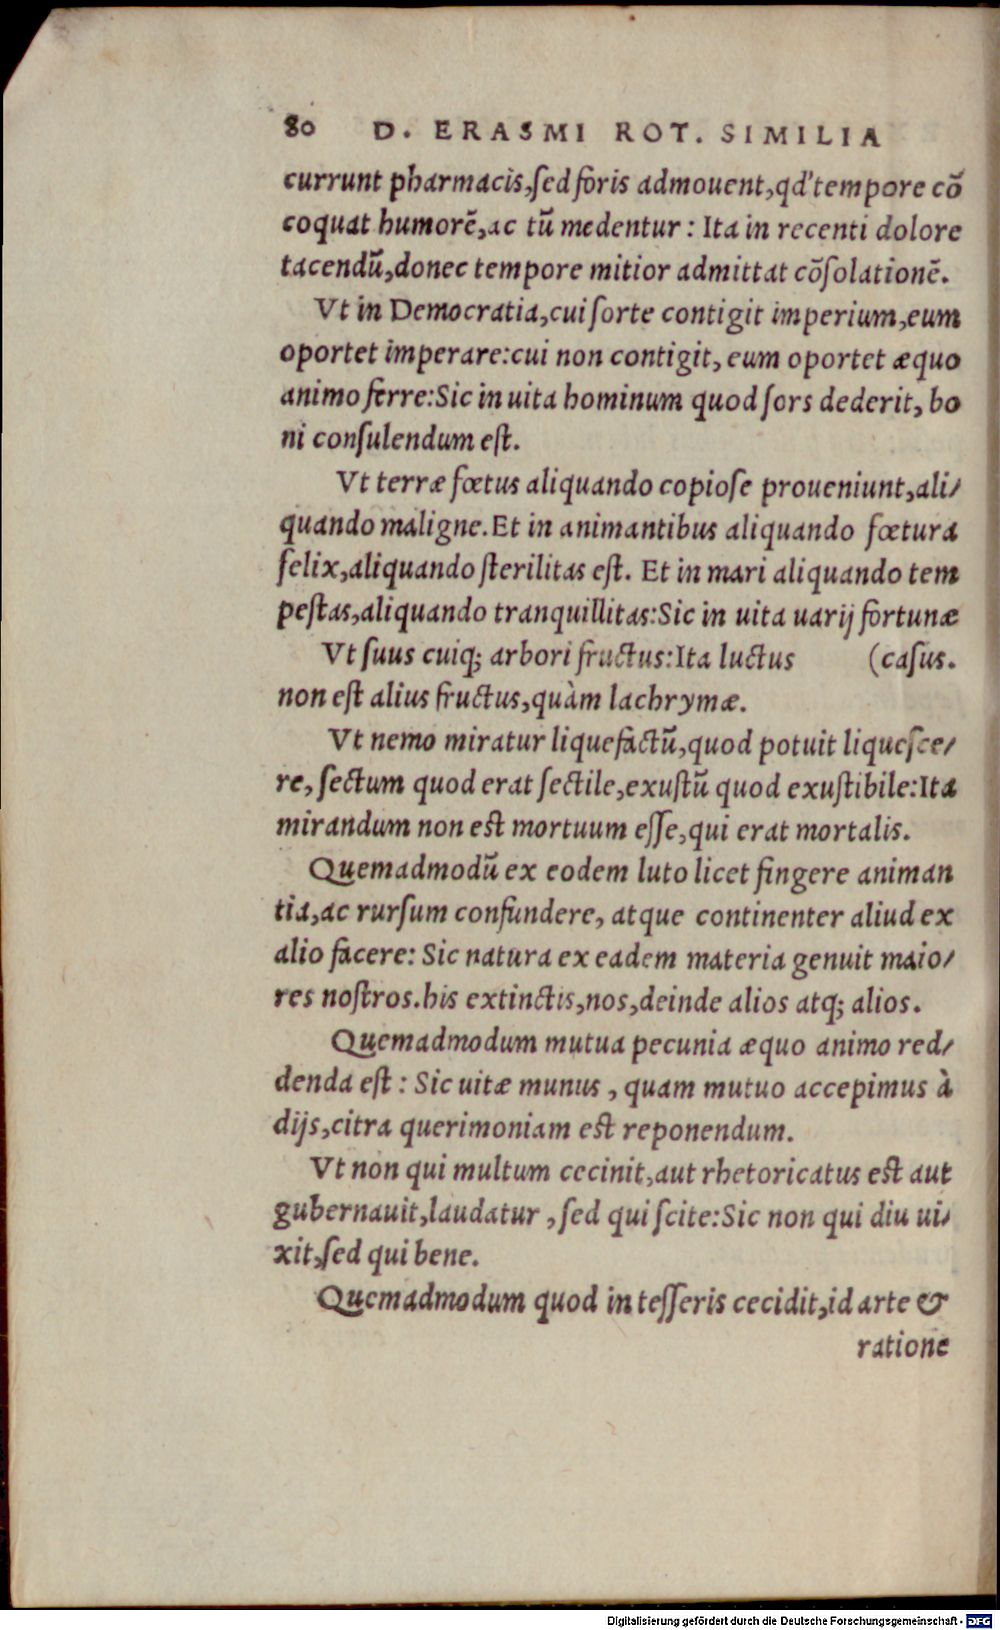 80 D. ERASMI ROT. SIMILIA
currunt pharmacis,ſed foris admouent,qd' tempore cō
coquat humorē,ac tū medentur: Ita in recenti dolore
tacendū,donec tempore mitior admittat cōſolationē.
Vt in Democratia,cui ſorte contigit imperium,eum
oportet imperare:cui non contigit, eum oportet æquo
animo ferre:Sic in uita hominum quod ſors dederit, bo
ni conſulendum eſt.
Vt terræ fœtus aliquando copioſe proueniunt,ali/
quando maligne.Et in animantibus aliquando fœtura
felix,aliquando ſterilitas eſt. Et in mari aliquando tem
peſtas,aliquando tranquillitas:Sic in uita uarij fortunæ
Vt ſuus cuiq; arbori fructus:Ita luctus (caſus.
non eſt alius fructus,quàm lachrymæ.
Vt nemo miratur liquefactū,quod potuit liqueſce/
re, ſectum quod erat ſectile,exuſtū quod exuſtibile:Ita
mirandum non eſt mortuum eſſe,qui erat mortalis.
Quemadmodū ex eodem luto licet fingere animan
tia,ac rurſum confundere, atque continenter aliud ex
alio facere: Sic natura ex eadem materia genuit maio/
res noſtros.his extinctis,nos,deinde alios atq; alios.
Quemadmodum mutua pecunia æquo animo red/
denda eſt: Sic uitæ munus, quam mutuo accepimus à
dijs,citra querimoniam eſt reponendum.
Vt non qui multum cecinit,aut rhetoricatus eſt aut
gubernauit,laudatur, ſed qui ſcite:Sic non qui diu ui/
xit,ſed qui bene.
Quemadmodum quod in teſſeris cecidit,id arte &
ratione
Digitalisierung gefördert durch die Deutsche Forschungsgemeinschaft - DFG